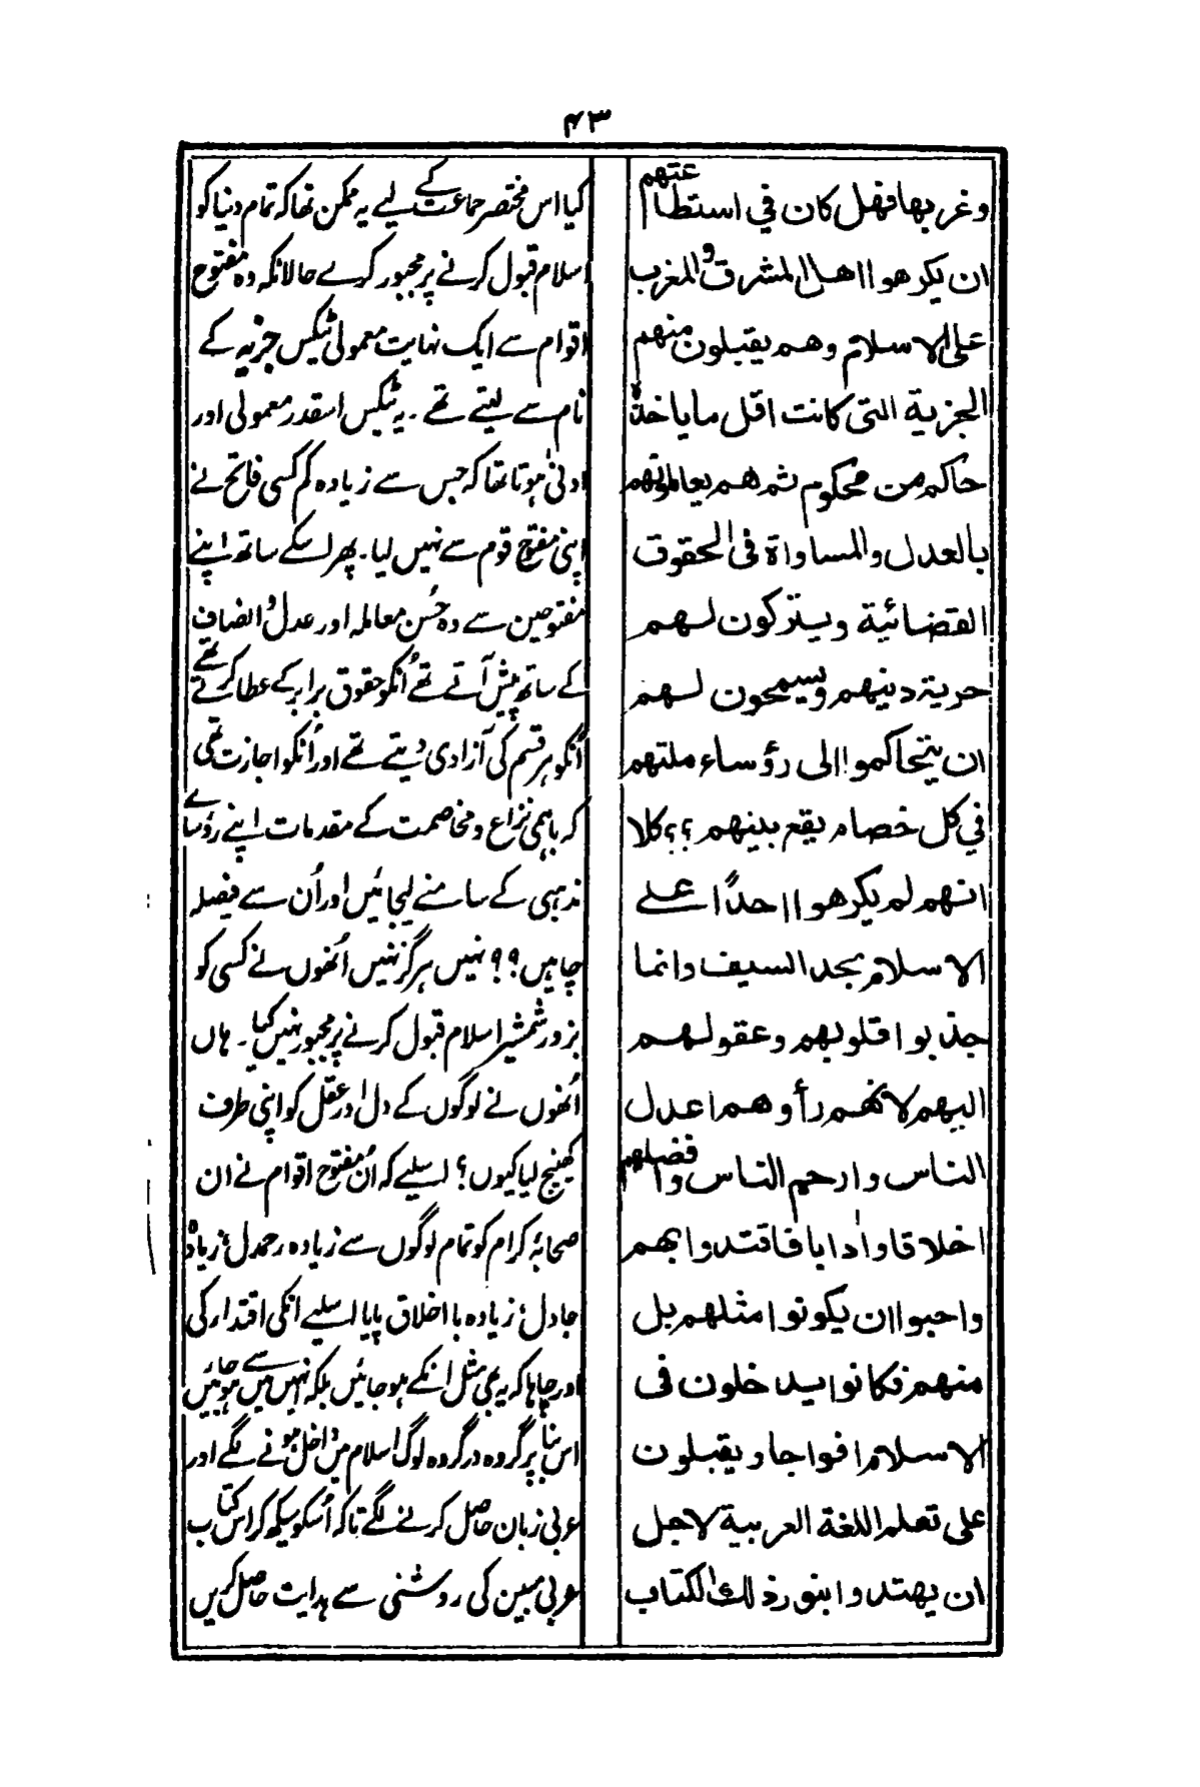 ۴۳
وغربها فهل كان في استطاعتهم
ان يكرهوا اهل المشرق والمغرب
على الاسلام وهم يقبلون منهم
الجزية التى كانت اقل ما ياخذه
حاكم من محكوم ثم هم يعاملونهم
بالعدل والمساواة فى الحقوق
القضائية ويتركون لهم
حرية دينهم ويسمحون لهم
ان يتحاكموا الى رؤساء ملتهم
في كل خصام يقع بينهم ؟؟ كلا
انهم لم يكرهوا احدًا على
الاسلام بحد السيف وانما
جذبوا قلوبهم وعقولهم
اليهم لانهم رأوهم اعدل
الناس وارحم الناس وافضلهم
اخلاقا واٰدابا فاقتدوا بهم
واحبوا ان يكونوا مثلهم بل
منهم فكانوا يدخلون فى
الاسلام افواجا ويقبلون
على تعلم اللغة العربية لاجل
ان يهتدوا بنور ذلك الكتاب
کیا اس مختصر جماعت کے لیے یہ ممکن تھا کہ تمام دنیا کو
اسلام قبول کرنے پر مجبور کرے حالانکہ وہ مفتوح
اقوام سے ایک نہایت معمولی ٹیکس جزیہ کے
نام سے لیتے تھے ۔ یہ ٹیکس اسقدر معمولی اور
ادنیٰ ہوتا تھا کہ جس سے زیادہ کم کسی فاتح نے
اپنی مفتوح قوم سے نہیں لیا۔ پھر اسکے ساتھ اپنے
مفتوحین سے وہ حُسن معاملہ اور عدل و انصاف
کے ساتھ پیش آتے تھے اُنکو حقوق برابر کے عطا کرتے تھے
اُنکو ہر قسم کی آزادی دیتے تھے اور اُنکو اجازت تھی
کہ باہمی نزاع و مخاصمت کے مقدمات اپنے رؤساے
مذہبی کے سامنے لیجائیں اور اُن سے فیصلہ
چاہیں ؟؟ نہیں ہرگز نہیں اُنھوں نے کسی کو
بزور شمشیر اسلام قبول کرنے پر مجبور نہیں کیا۔ ہاں
اُنھوں نے لوگوں کے دل اور عقل کو اپنی طرف
کھینچ لیا کیوں ؟ اسلیے کہ اُن مفتوح اقوام نے ان
صحابۂ کرام کو تمام لوگوں سے زیادہ رحمدل، زیادہ
عادل، زیادہ با اخلاق پایا اسلیے انکی اقتدار کی
اور چاہا کہ یہ بھی مثل انکے ہو جائیں بلکہ انہیں میں سے ہو جائیں
اس بنا پر گروہ در گروہ لوگ اسلام میں داخل ہونے لگے اور
عربی زبان حاصل کرنے لگے تاکہ اُسکو سیکھ کر اس کتاب
عربی مبین کی روشنی سے ہدایت حاصل کریں